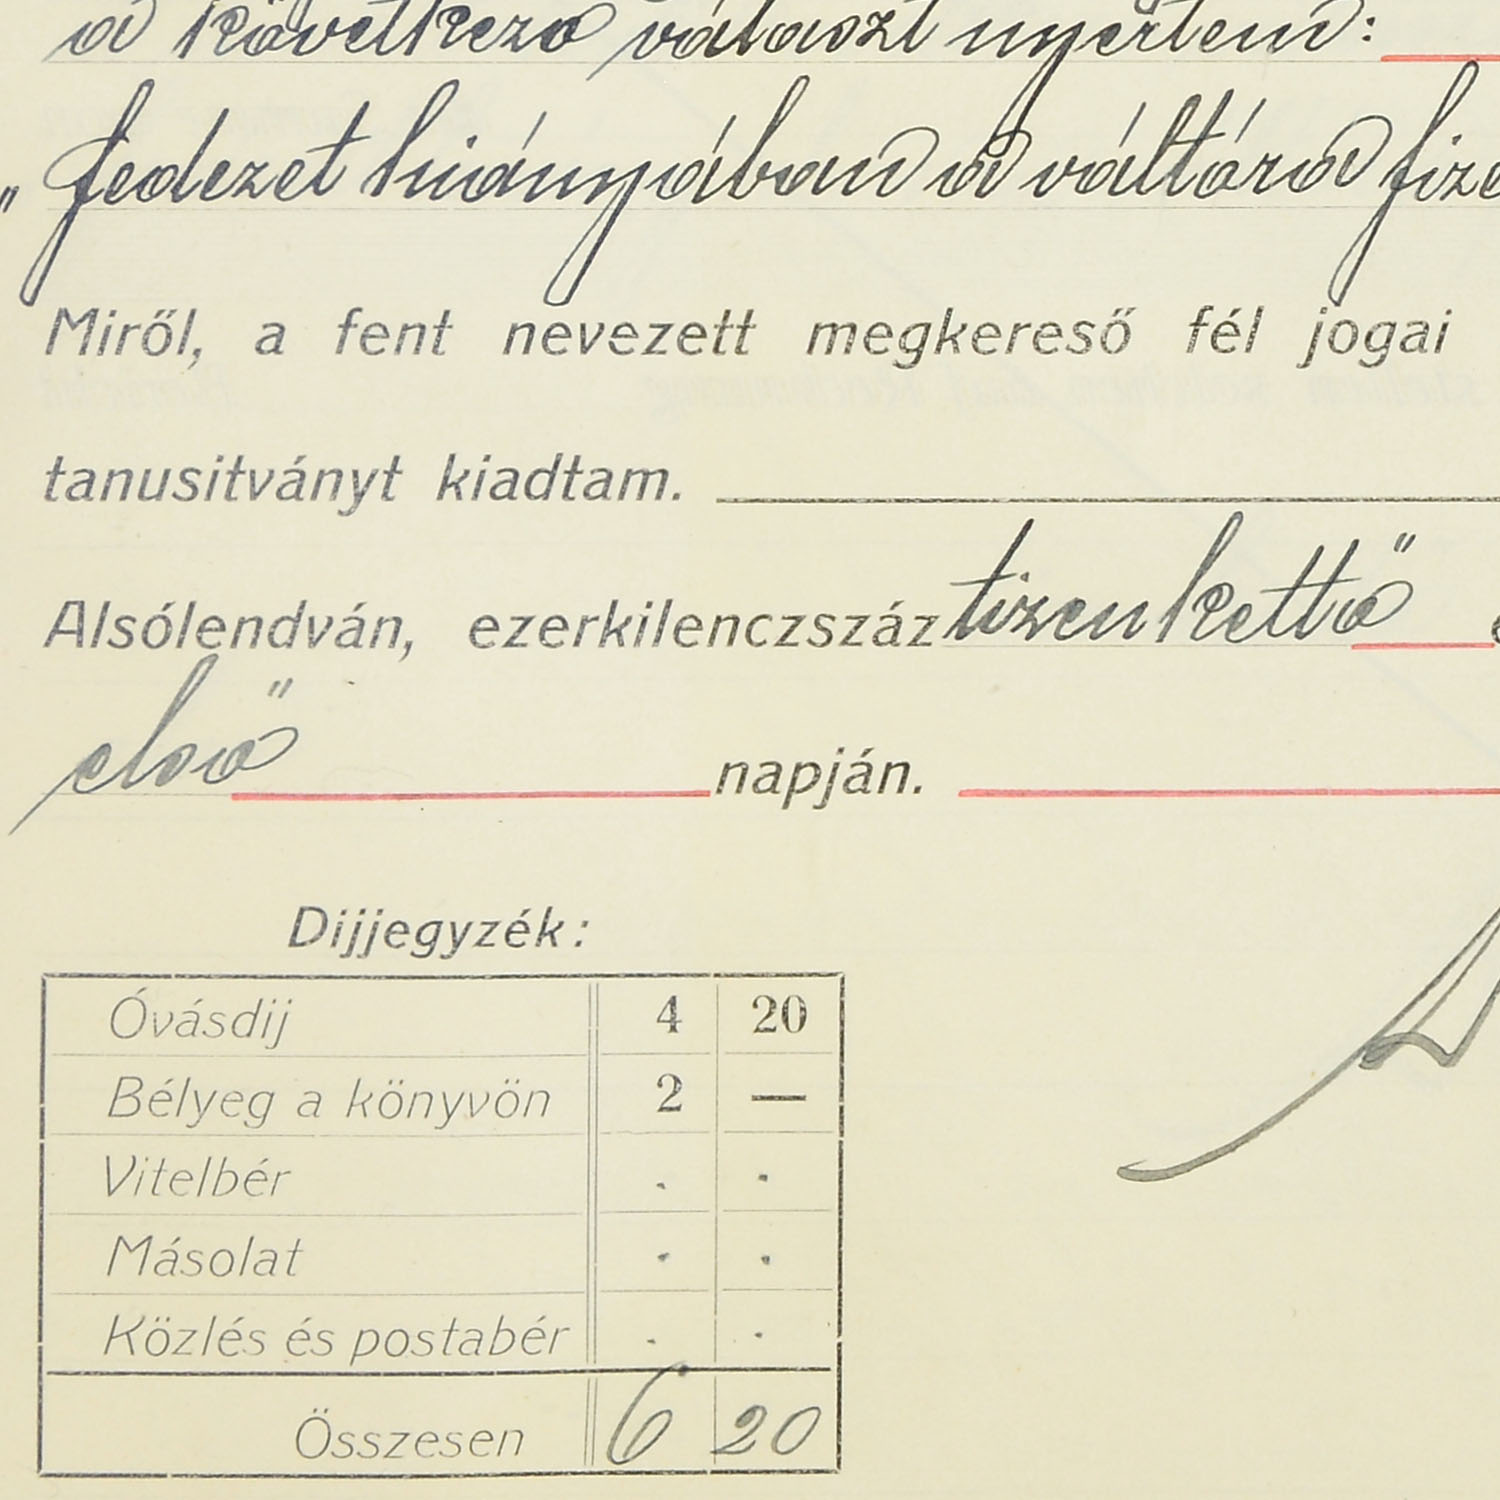 a következő választ nyertem:
„fedezet hiányában a váltóra
Miről, a fent nevezett megkereső fél jogai
tanusitványt kiadtam.
Alsólendván, ezerkilenczszáz tizenkettő
első napján.
Dijjegyzék:
Óvásdij 4 20
Bélyeg a könyvön 2 —
Vitelbér . .
Másolat . .
Közlés és postabér . .
Összesen 6 20